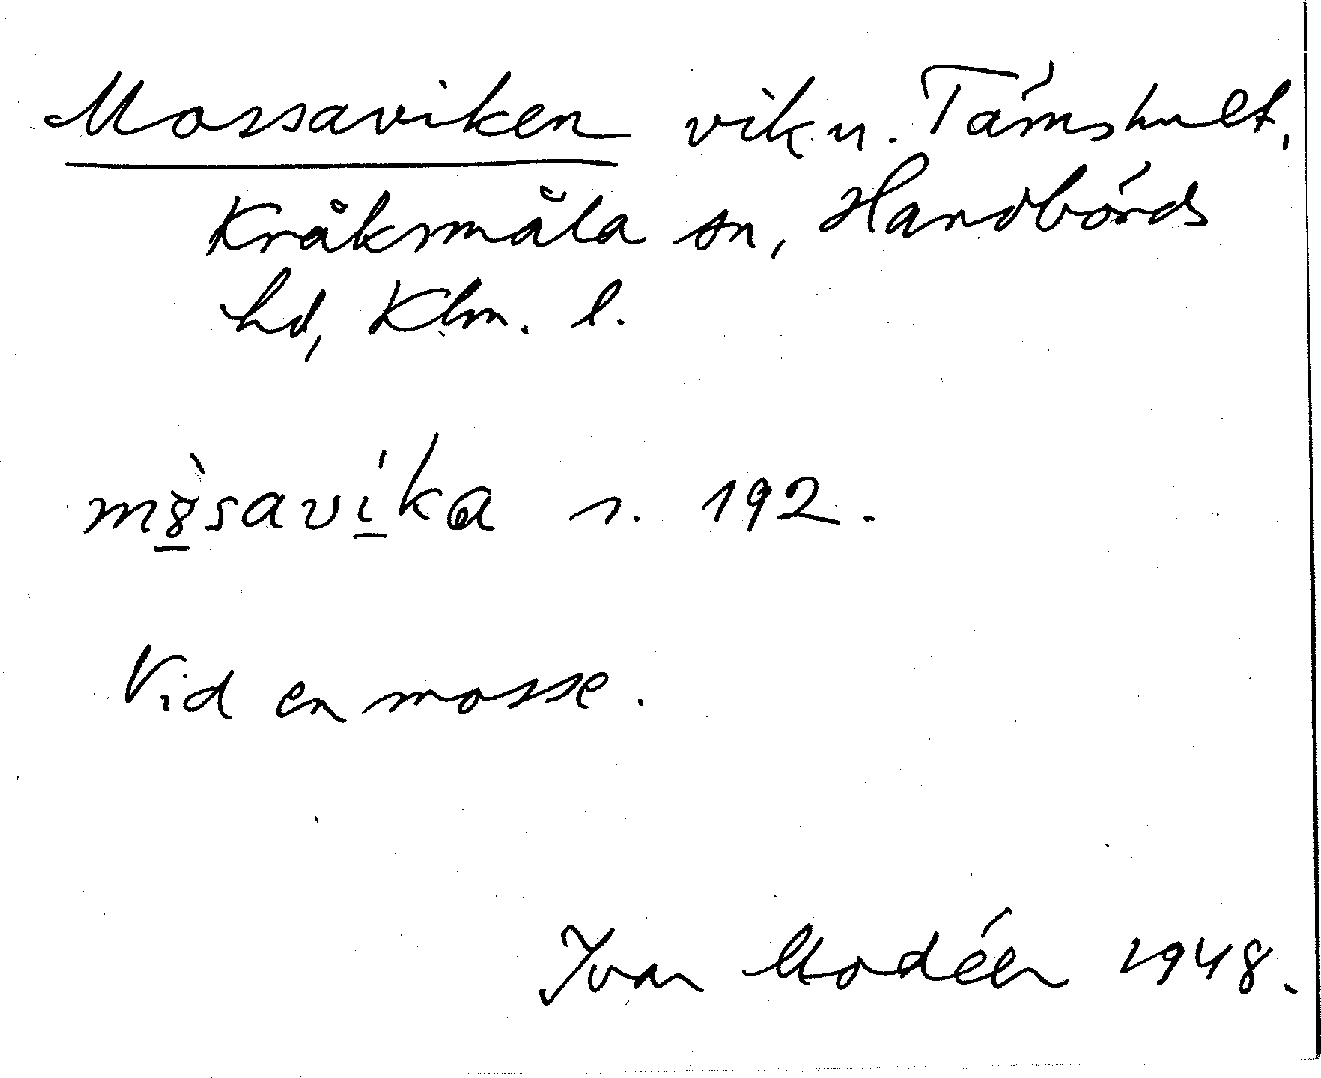 Mossaviken vik u. Támshult,
Kråksmåla sn, Handbörds
hd, Klm. l.
m8̲̀saví̲ka s. 192.
Vid en mosse.
Ivar Modéer 1948.